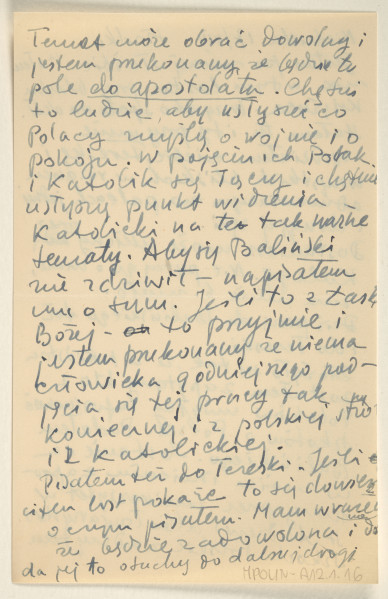 Temat może obrać dowolny i
jestem przekonany że będzie to
pole do apostolatu. Chętni
to ludzie, aby usłyszeć co
Polacy myślą o wojnie i o
pokoju. W pojęciu ich Polak
i Katolik są Tacy i chętnie
usłyszą punkt widzenia
Katolicki na te tak ważne
tematy. Aby się Baliński
nie zdziwił – napisałem
mu o tym. Jeśli to z Łaski
Bożej – to przyjmie i
jestem przekonany że niema
człowieka godniejszego pod-
jęcia się tej pracy tak
koniecznej i z polskiej stro-
i z Katolickiej.
Pisałem też do Tereski. Jeśli
ci ten list pokaże to się dowiesz
o czym pisałem. Mam wrażenie
że będzie zadowolona i do
da jej to otuchy do dalszej drogi
MPOLIN-A12.1.16